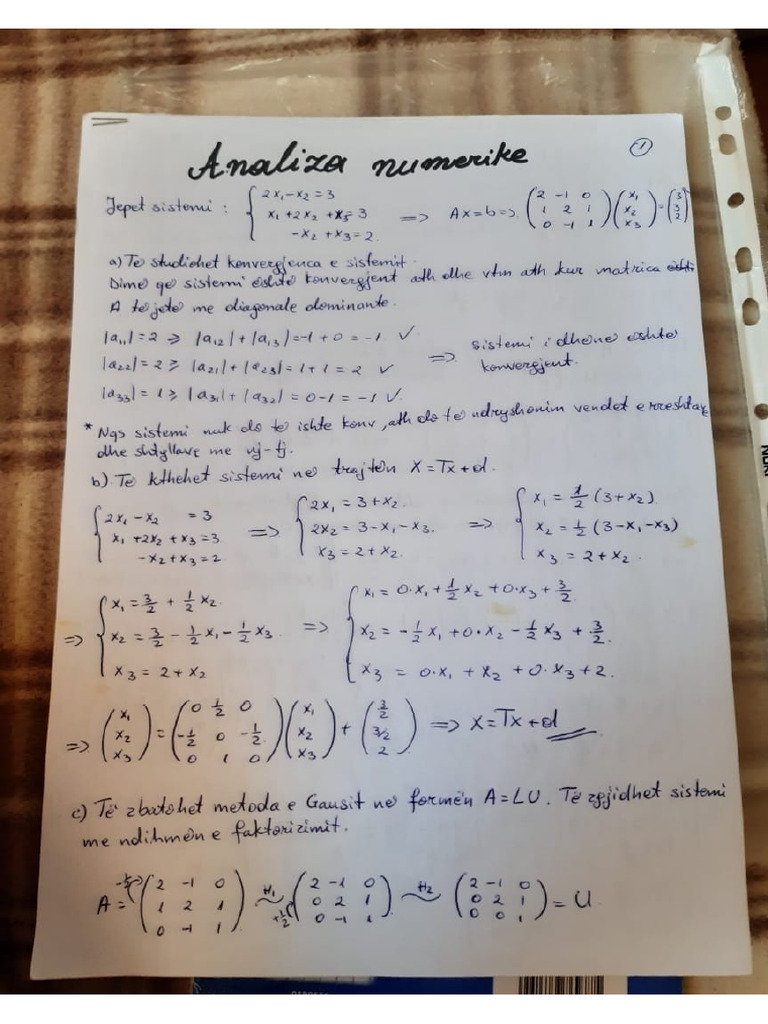 1
Analiza numerike
Jepet sistemi : { 2x₁-x₂=3
x₁+2x₂+x₃=3
-x₂+x₃=2 => Ax=b=> (2 -1 0; 1 2 1; 0 -1 1)(x₁; x₂; x₃)=(3; 3; 2)
a) Te studiohet konvergjenca e sistemit.
Dime qe sistemi eshte konvergjent ath dhe vtm ath kur matrica eshte
A te jete me diagonale dominante.
|a₁₁|=2 ≥ |a₁₂|+|a₁₃|=-1+0=-1 ✓
|a₂₂|=2 ≥ |a₂₁|+|a₂₃|=1+1=2 ✓ => sistemi i dhene eshte
konvergjent.
|a₃₃|=1 ≥ |a₃₁|+|a₃₂|=0-1=-1 ✓
* Nqs sistemi nuk do te ishte konv, ath do te ndryshonim vendet e rreshtave
dhe shtyllave me nj-tj.
b). Te kthehet sistemi ne trajten X=Tx+d.
{ 2x₁-x₂ =3
x₁+2x₂+x₃=3
-x₂+x₃=2 => { 2x₁=3+x₂
2x₂=3-x₁-x₃
x₃=2+x₂ => { x₁=1/2(3+x₂)
x₂=1/2(3-x₁-x₃)
x₃=2+x₂
=> { x₁=3/2+1/2x₂
x₂=3/2-1/2x₁-1/2x₃
x₃=2+x₂ => { x₁=0·x₁+1/2x₂+0·x₃+3/2
x₂=-1/2x₁+0·x₂-1/2x₃+3/2
x₃=0·x₁+x₂+0·x₃+2.
=> (x₁; x₂; x₃)=(0 1/2 0; -1/2 0 -1/2; 0 1 0)(x₁; x₂; x₃)+(3/2; 3/2; 2) => X=Tx+d
c) Të zbatohet metoda e Gausit ne formën A=LU. Të zgjidhet sistemi
me ndihmën e faktorizimit.
A=(2 -1 0; 1 2 1; 0 -1 1) ~ H₁ +1/2 (2 -1 0; 0 2 1; 0 -1 1) ~ H₂ (2 -1 0; 0 2 1; 0 0 1)=U